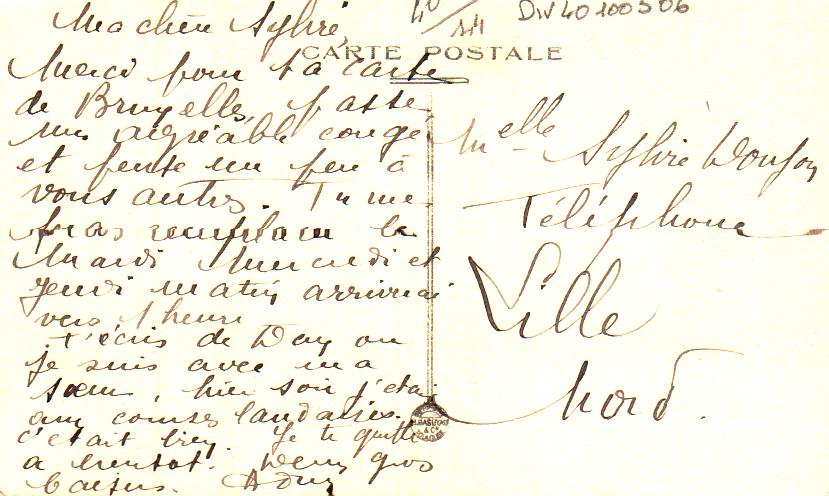 40/14 DW40100506
Ma chère Sylvie,
CARTE POSTALE
Merci pour ta carte
de Bruxelles, passe
un agréable congé
et pense un peu à
vous autres. Tu me
feras remplacer le
Mardi Mercredi et
Jeudi matin arriverai
vers 1 heure
t'écris de Dax ou
je suis avec ma
sœur, hier soir j'étai
aux courses landaises.
c'était bien. Je te quitte
a bientot. Deux gros
baisers.
Melle Sylvie
Téléphone
Lille
Nord.